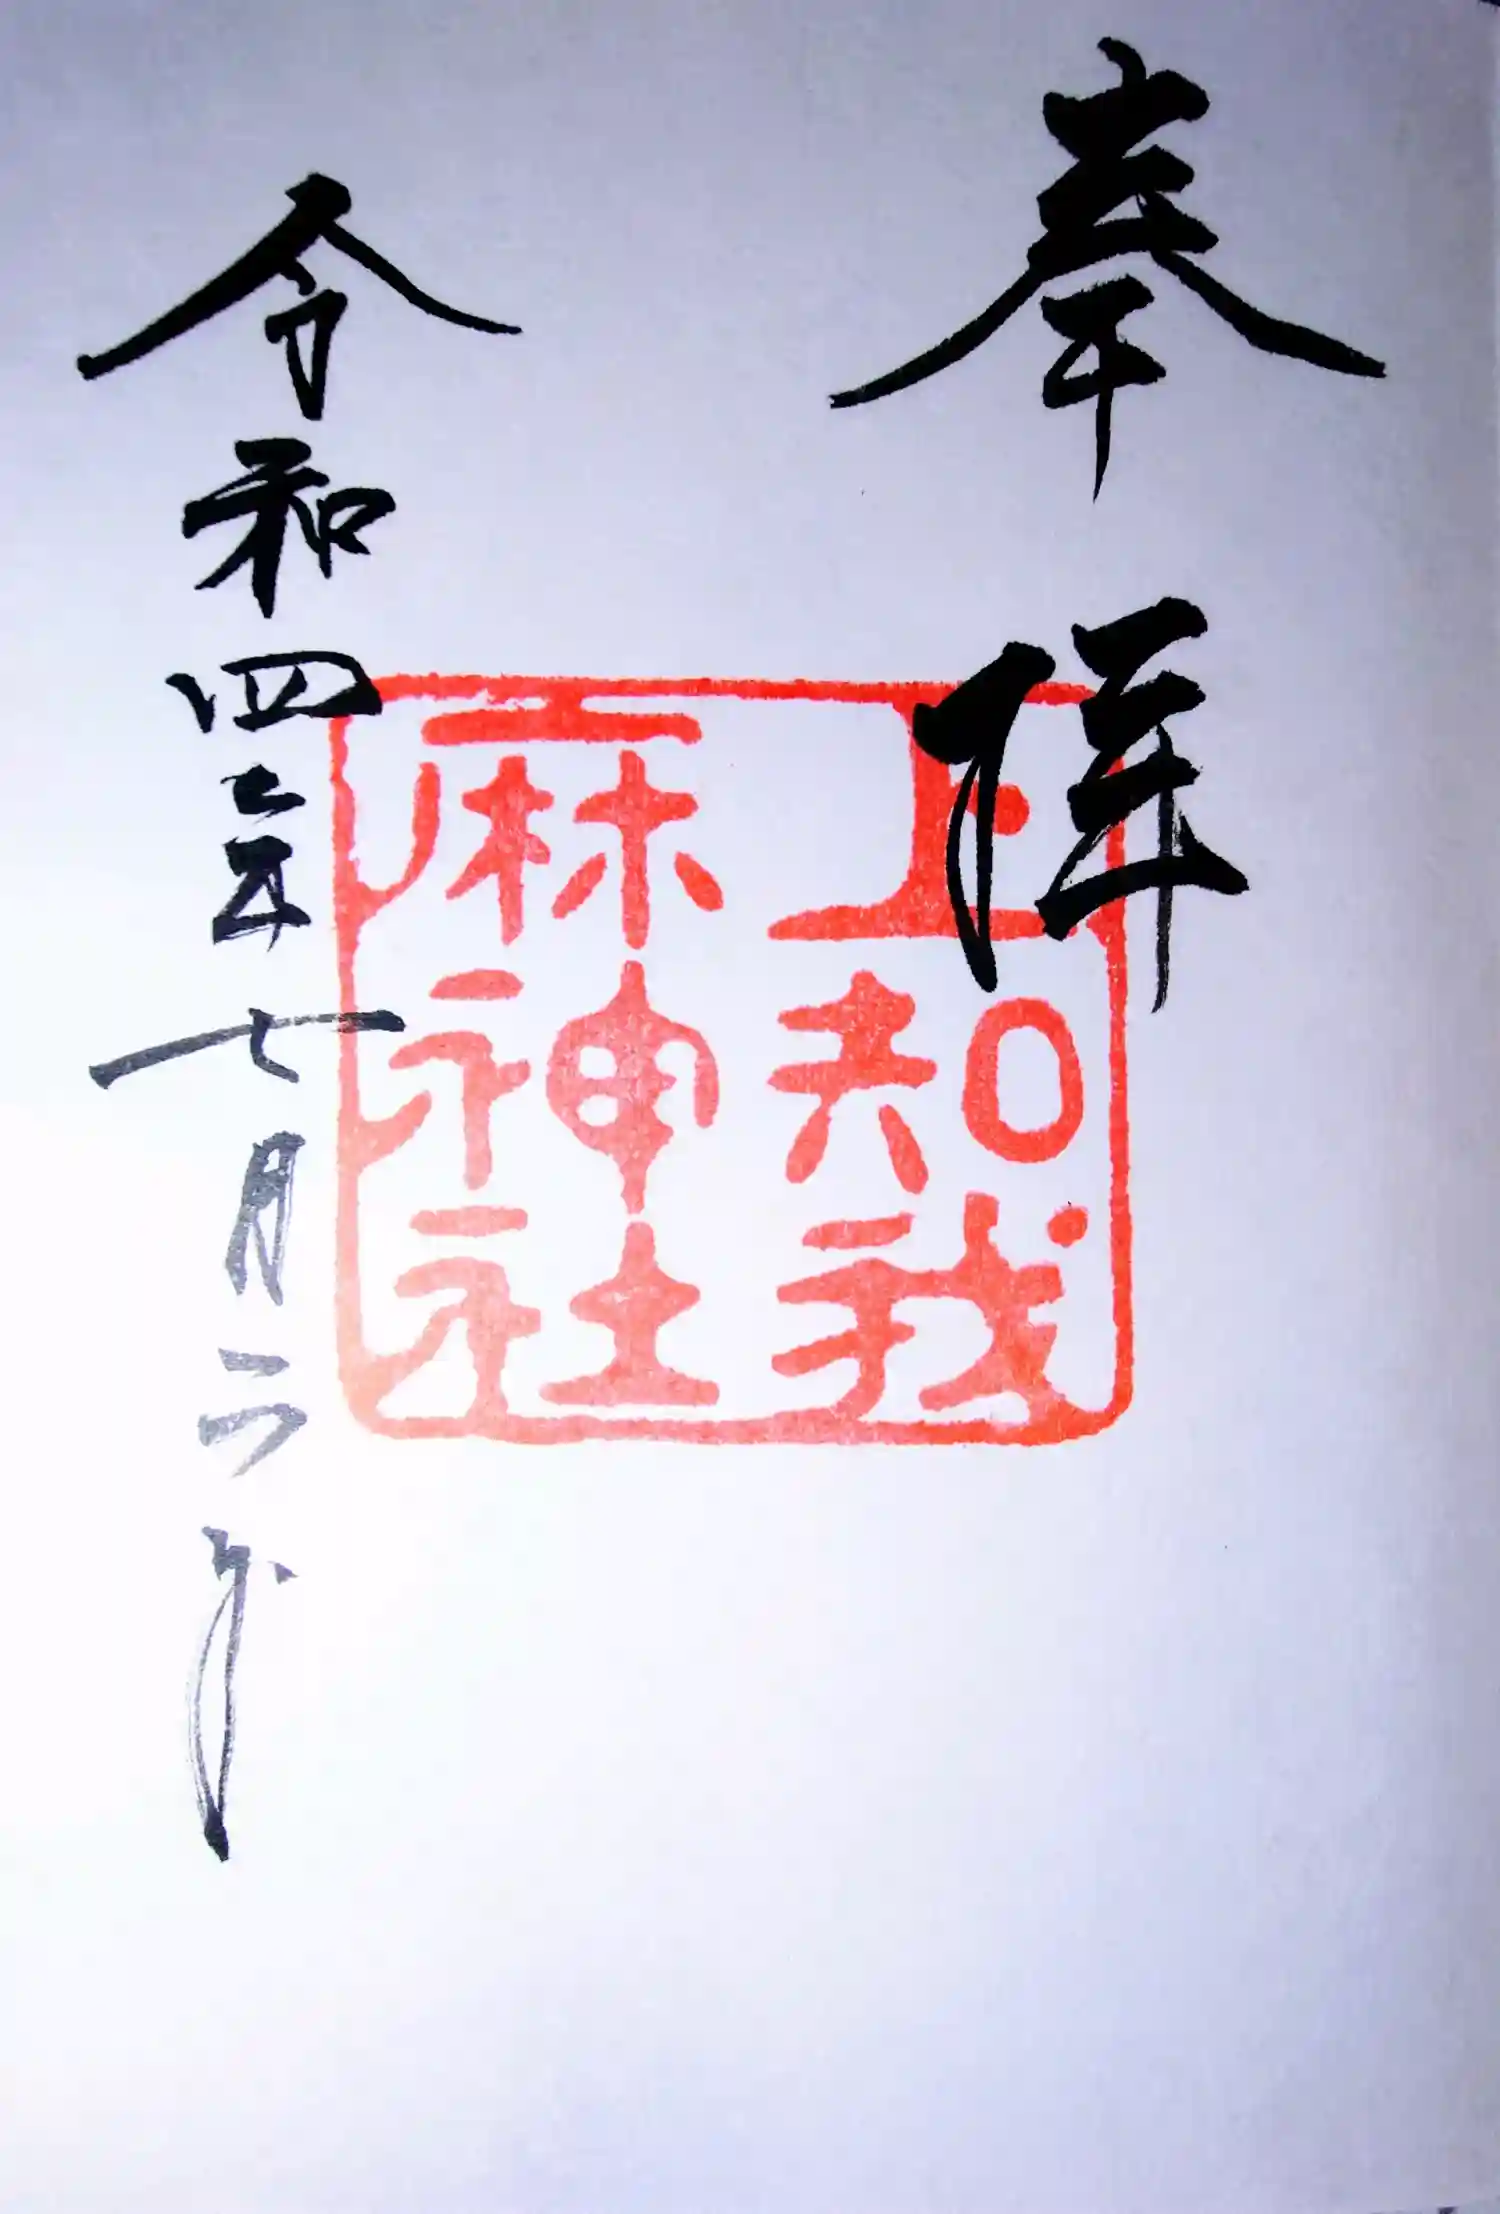 奉拝
上知我
麻神社
令和四年七月二日